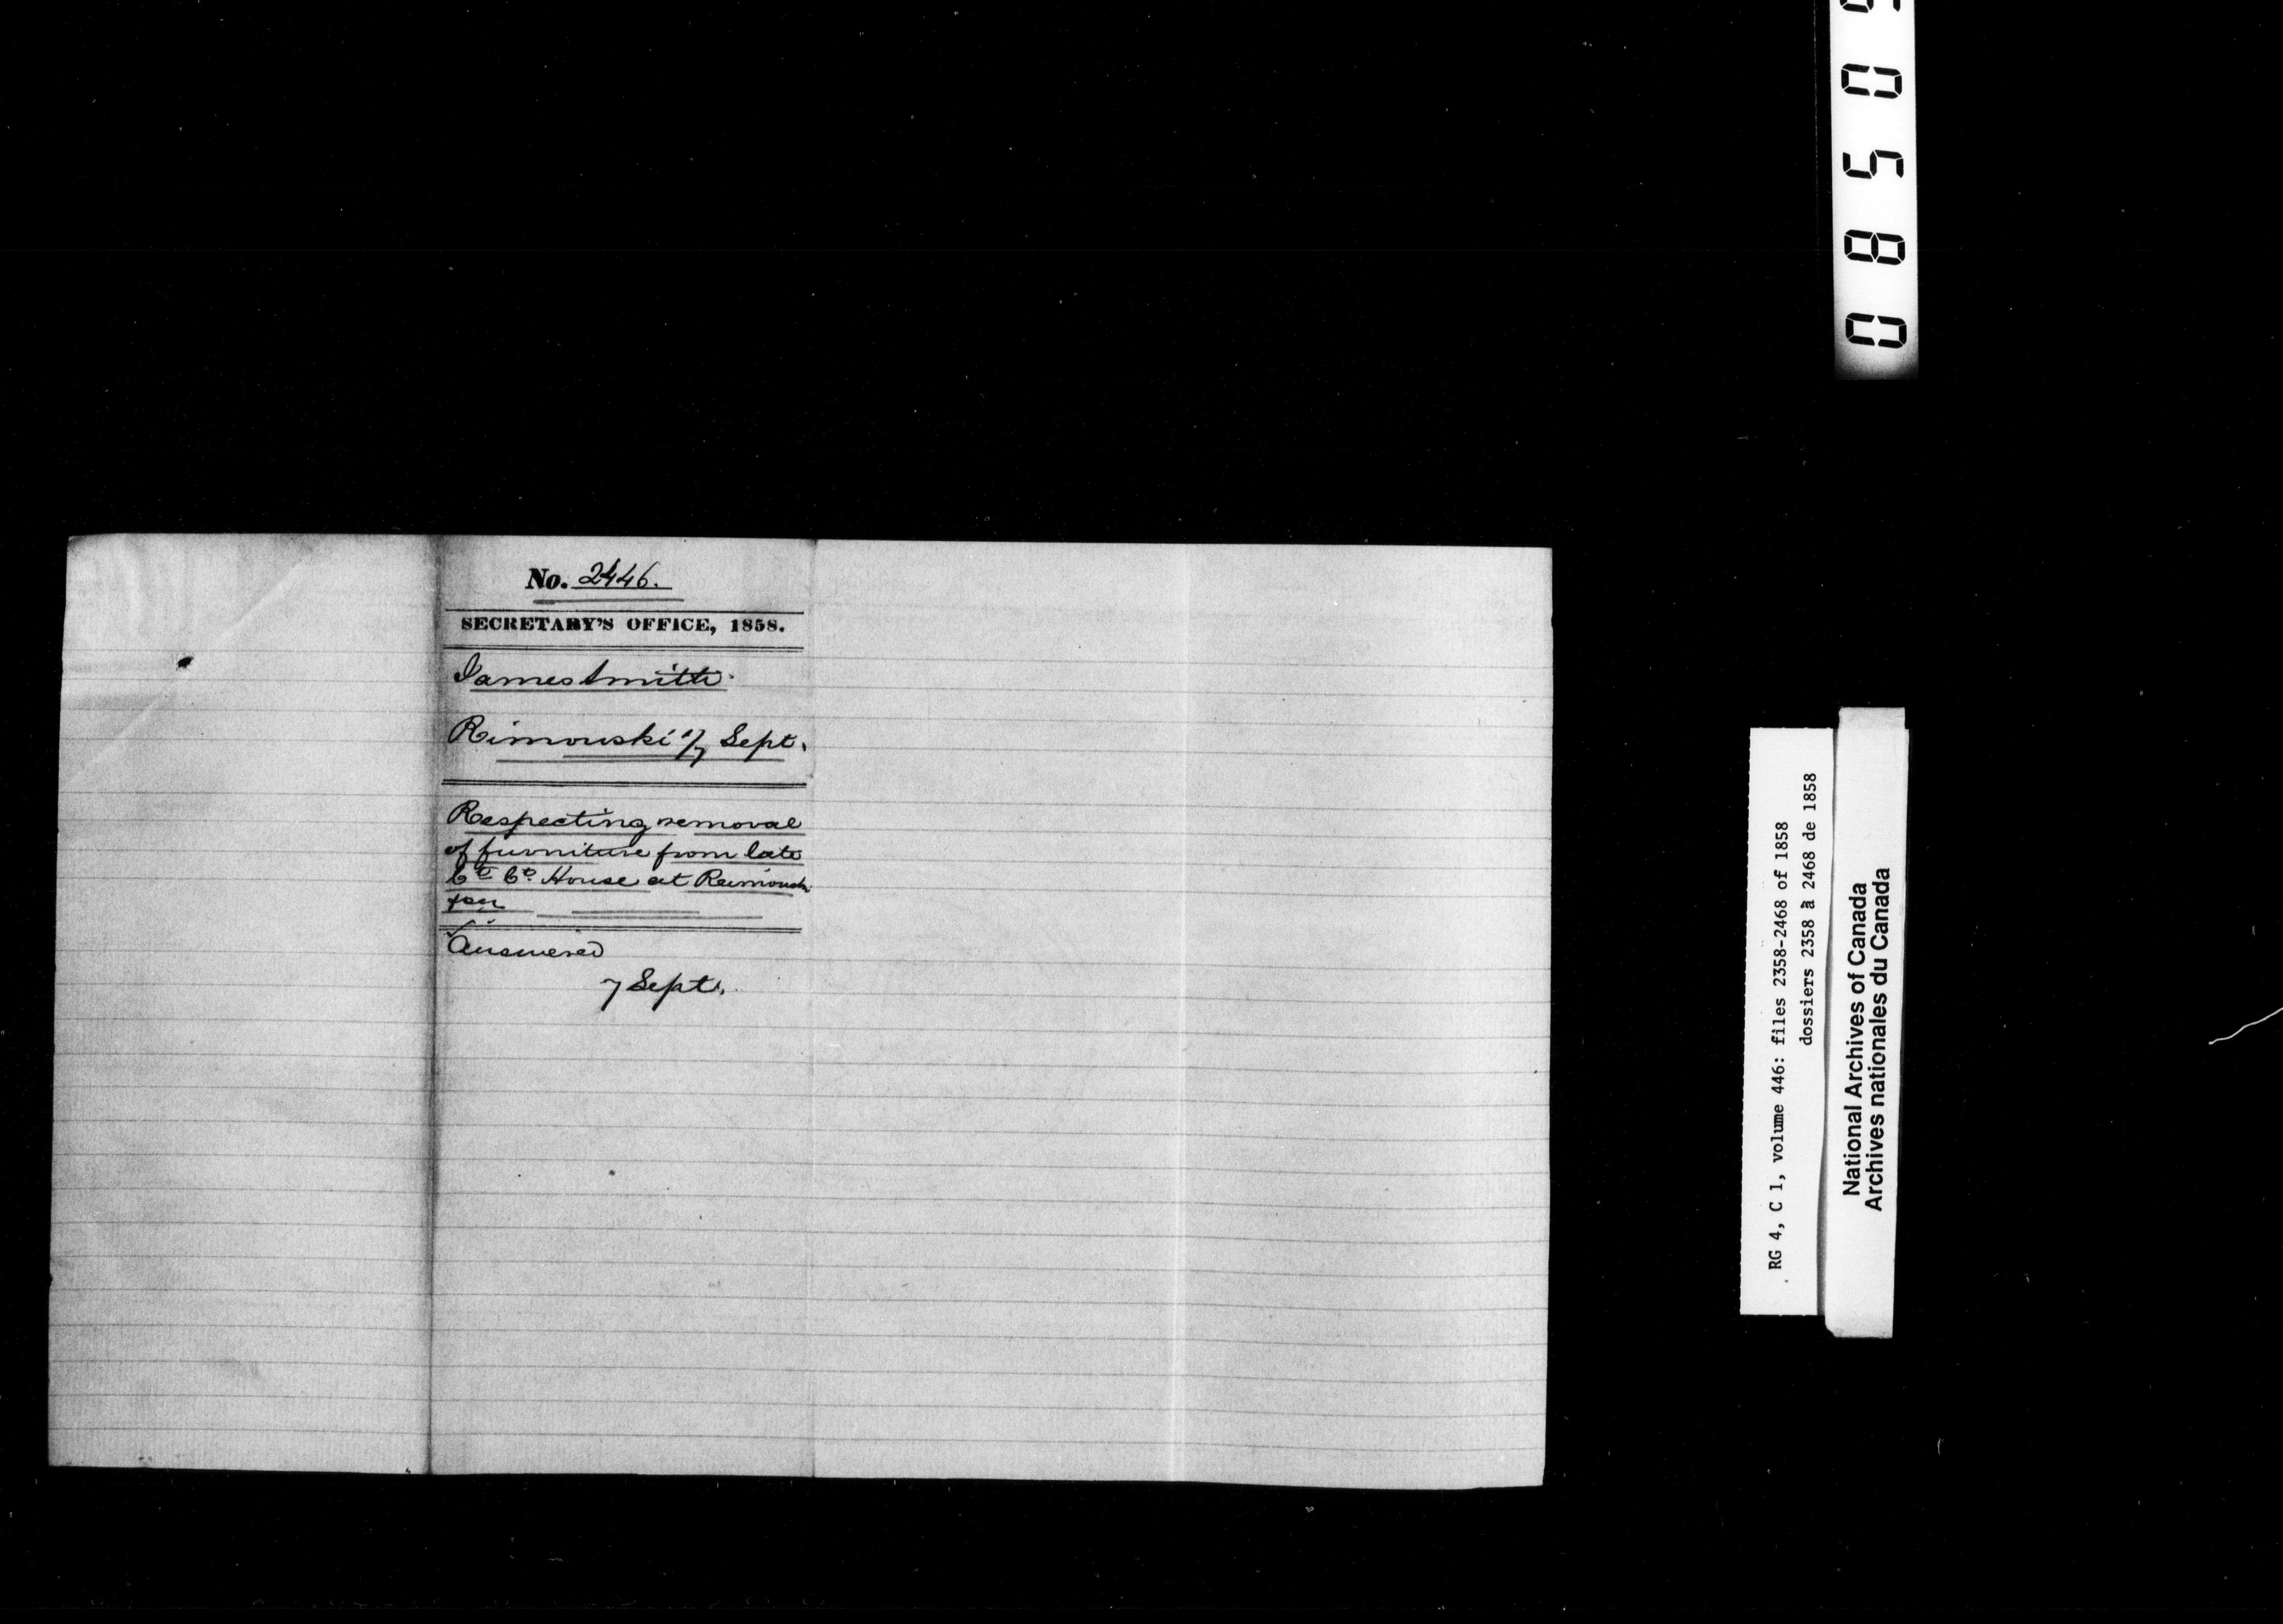 No. 2446.
SECRETARY'S OFFICE, 1858.
James Smith
Rimouski 7 Sept.
Respecting removal
of furniture from late
Ct Ct House at Rimouski
Answered
7 Sept.
RG 4, C 1, volume 446: files 2358-2468 of 1858
dossiers 2358 à 2468 de 1858
National Archives of Canada
Archives nationales du Canada
0 8 5 0